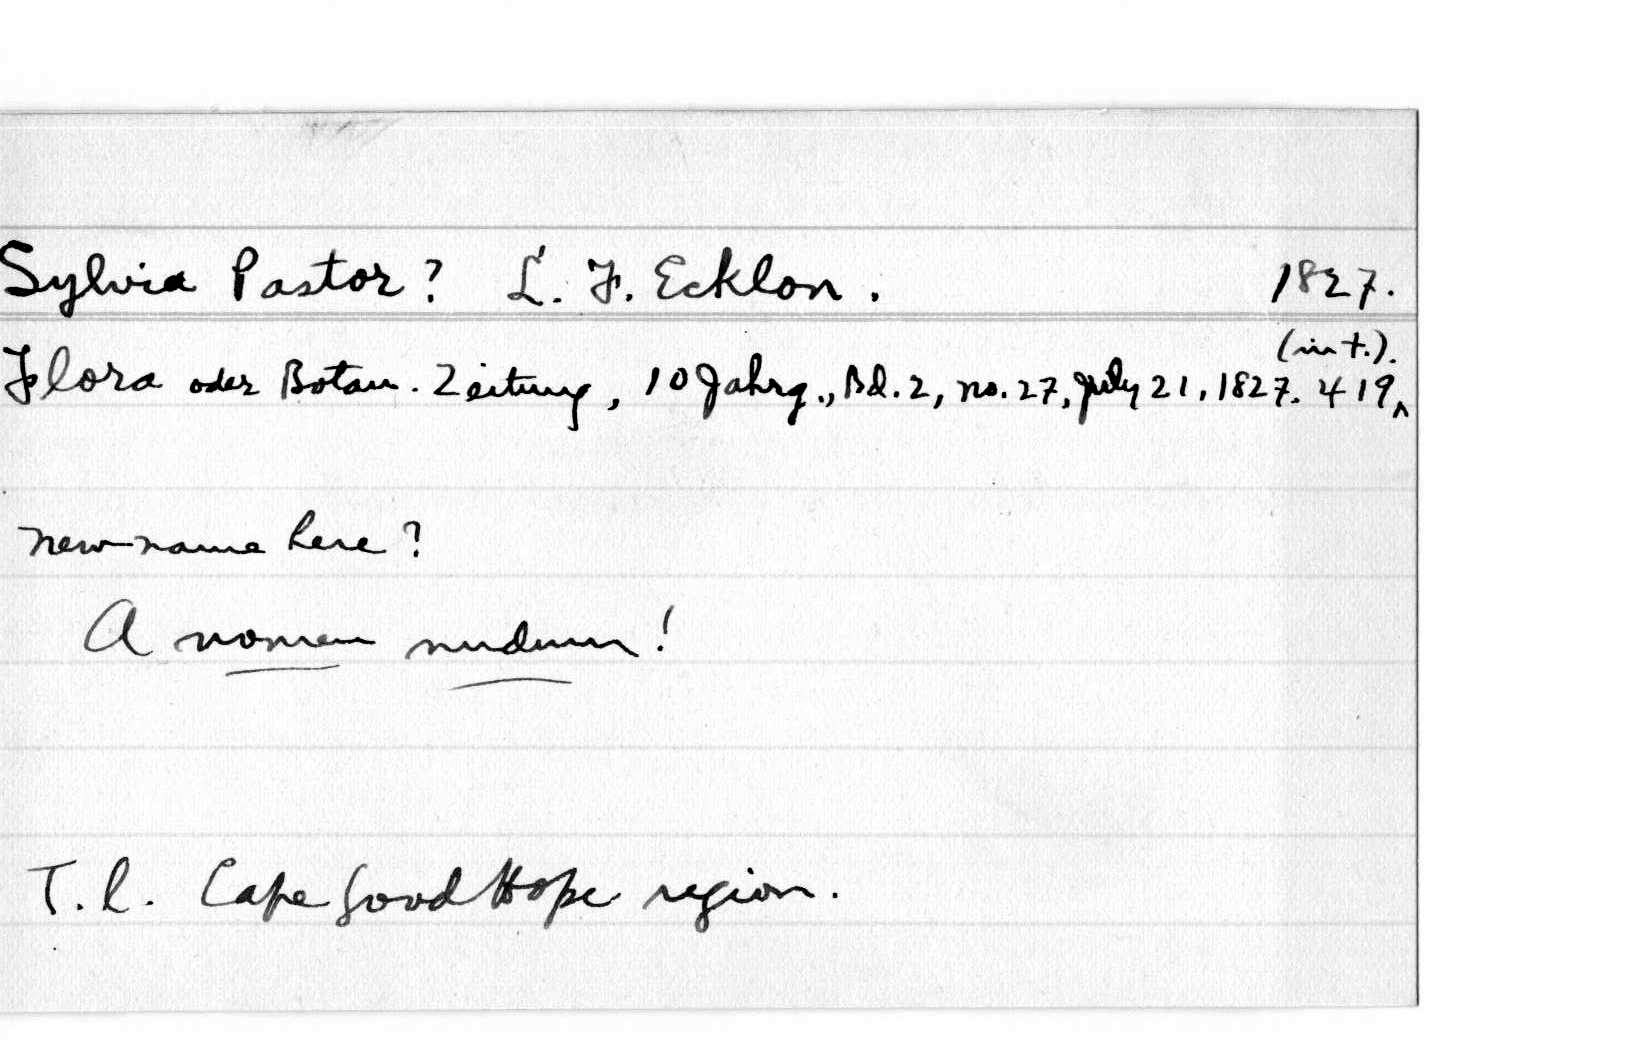 Sylvia Pastor? L. F. Ecklon. 1827.
Flora oder Botan. Zeitung, 10 Jahrg., Bd. 2, no. 27, July 21, 1827. 419 (in t.).
new name here?
A nomen nudum!
T. l. Cape Good Hope region.